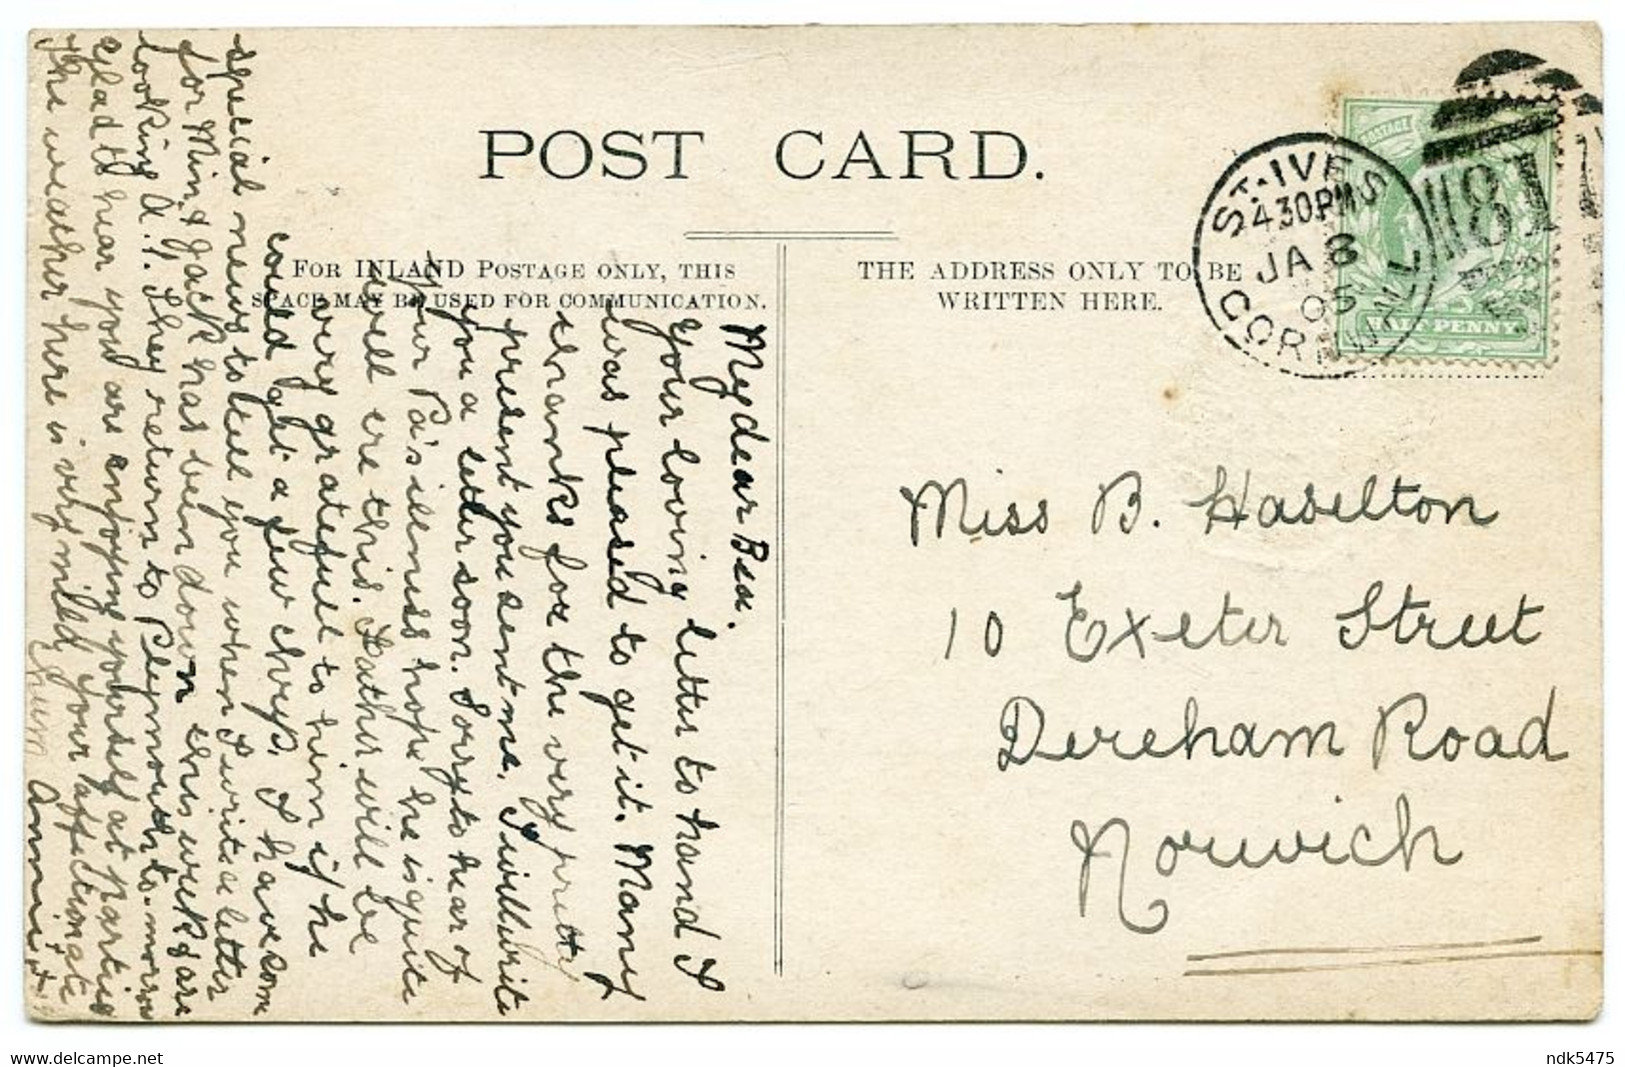 POST CARD.
FOR INLAND POSTAGE ONLY, THIS
SPACE MAY BE USED FOR COMMUNICATION.
THE ADDRESS ONLY TO BE
WRITTEN HERE.
ST. IVES
4 30PM
JA 8
05
CORNWALL
POSTAGE
HALF PENNY
Miss B. Haselton
10 Exeter Street
Dereham Road
Norwich
My dear Bea.
Your loving letter to hand I
was pleased to get it. Many
thanks for the very pretty
present you sent me. I will write
you a letter soon. Sorry to hear of
your Pa's illness hope he is quite
well ere this. Father will be
very grateful to him if he
could get a few chrys. I have some
special news to tell you when I write a letter
for Min & Jack has been down this week & are
looking A.1. They return to Plymouth to-morrow
glad to hear you are enjoying yourself at parties
The weather here is very mild your affectionate
chum Annie
ndk5475